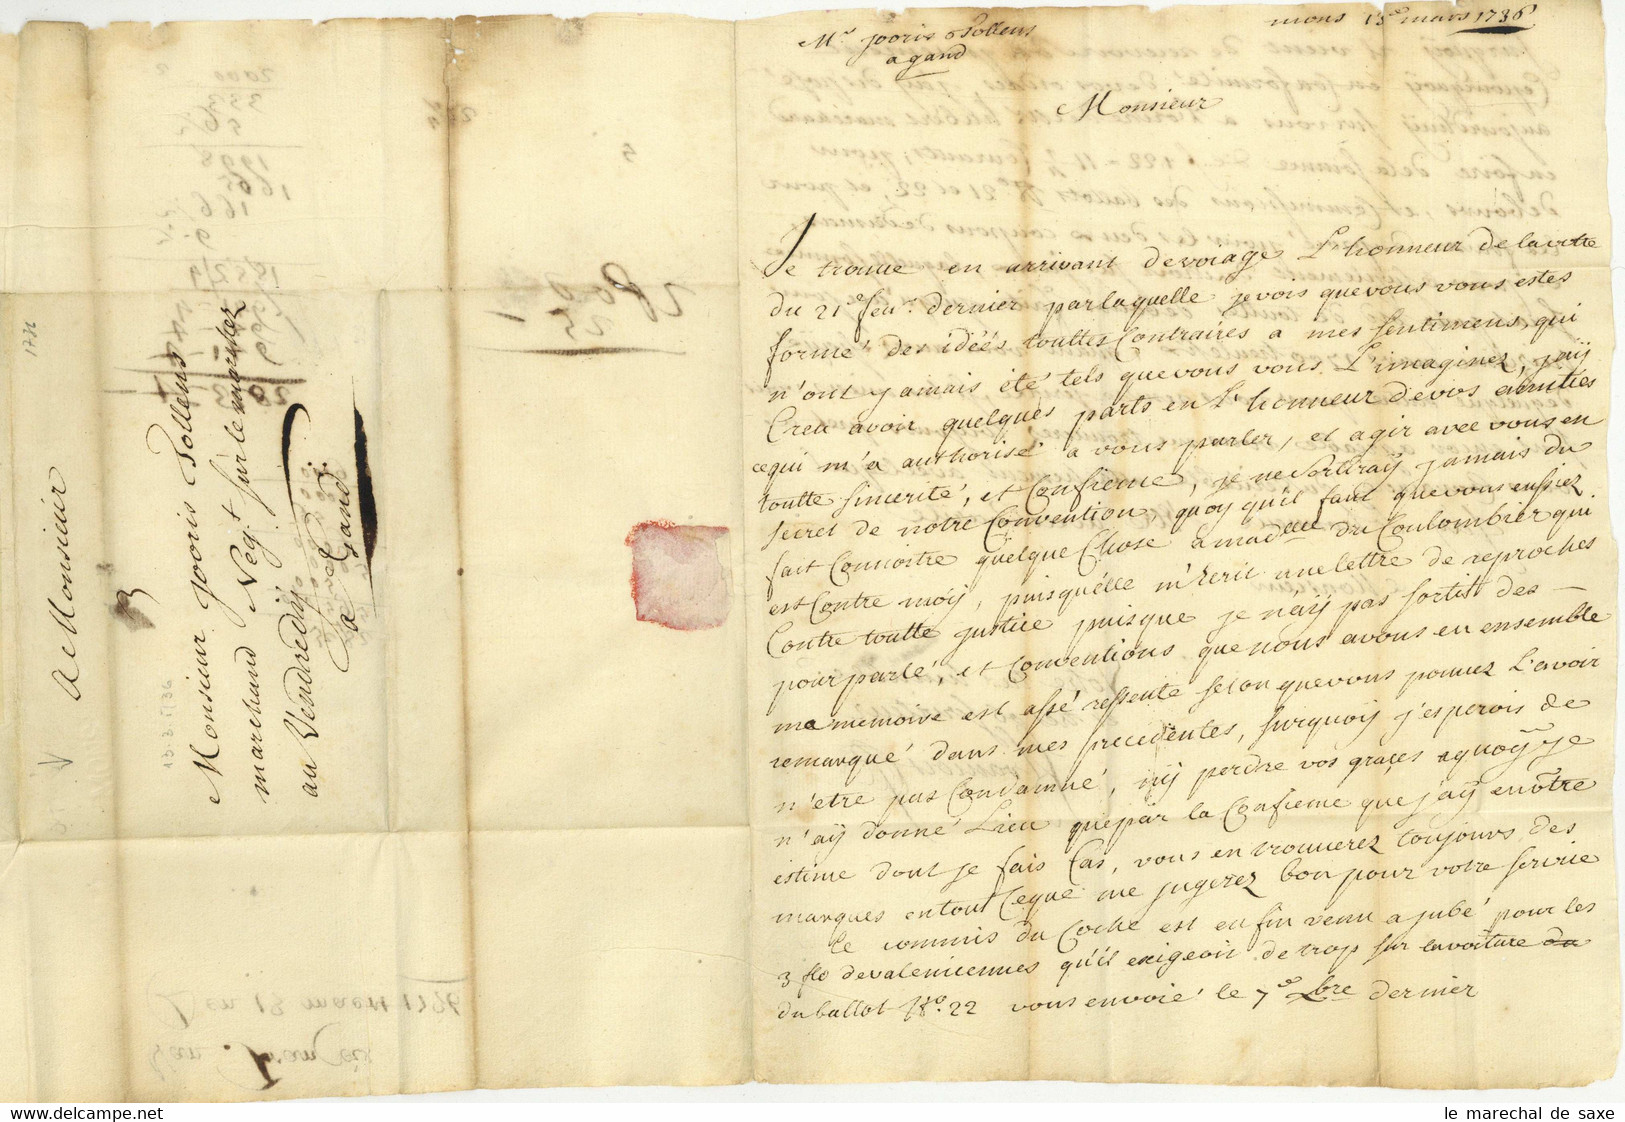 mons 13e mars 1736
Mr. jooris Pollens
a gand
Monsieur
Je trouve en arrivant devoiage L'honneur de lavotre
du 21e feur. dernier parlaquelle je vois que vous vous estes
formé des idéés touttes Contraires a mes sentimens, qui
n'ont jamais été tels que vous vous L'imaginez, j'aÿ
Creu avoir quelques parts en L'honneur de vos amities
cequi m'a authorisé a vous parler, et agir avec vous en
toutte sincerité, et Confieme, je ne sortiraÿ jamais du
secret de notre Convention, quoy qu'il faut que vous eussiez
fait Connoistre quelque Chose a madelle du Coulombier qui
est Contre moÿ, puisqu'elle m'Ecrit une lettre de reproches
Contre toutte justice puisque je n'aÿ pas sortit des
pourparlé, et Conventions que nous avons eu ensemble
ma memoire est assé ressente selon que vous pouvez L'avoir
remarqué dans mes precedentes, surquoÿ j'esperois de
n'etre pas Condamné, nÿ perdre vos graces aquoÿ je
n'aÿ donné Lieu que par la Confieme que j'aÿ en vôtre
estime dont je fais Cas, vous en trouverez toujours des
marques en tout Ceque me jugerez bon pour votre service
Le commis du Coche est enfin venu a jubé pour les
3 flo devalenciennes qu'il exigeoit de trop sur lavoiture du
du ballot No. 22 vous envoié le 7e 9bre dernier
A Monsieur
Monsieur jooris Pollens
marchand Negt. sur le marchez
au Vendredÿ
a Gand.
13.3.1736
le marechal de saxe